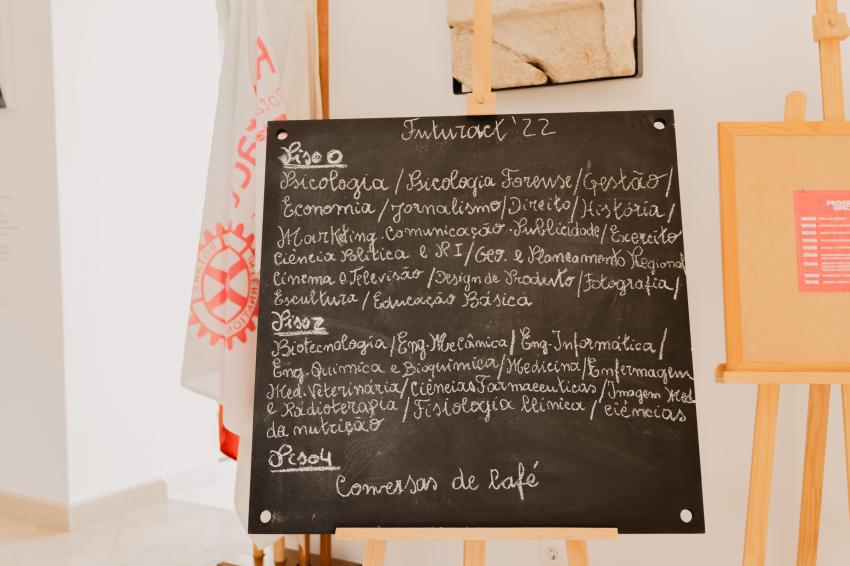 Futuract '22
Piso 0
Psicologia / Psicologia Forense / Gestão /
Economia / Jornalismo / Direito / História /
Marketing. Comunicação. Publicidade / Exercito
Ciência Política e RI / Geo. e Planeamento Regional
Cinema e Televisão / Design de Produto / Fotografia /
Escultura / Educação Básica
Piso 2
Biotecnologia / Eng. Mecânica / Eng. Informática /
Eng. Química e Bioquímica / Medicina / Enfermagem
Med. Veterinária / Ciências Farmaceuticas / Imagem Med
e Radioterapia / Fisiologia Clínica / ciências
da nutrição
Piso 4
Conversas de Café